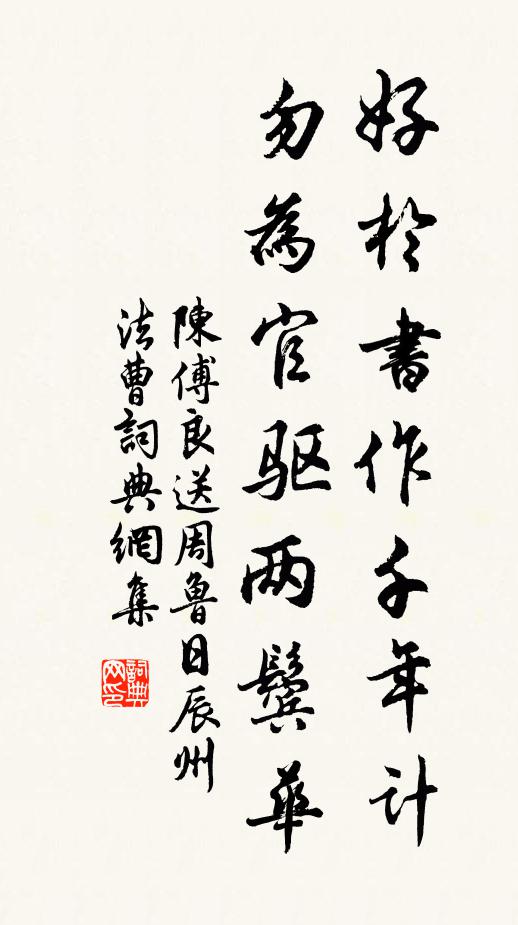 好於書作千年計
勿為官驱两鬓華
陳傅良送周魯日辰州
法曹詞典網集
詞典网印